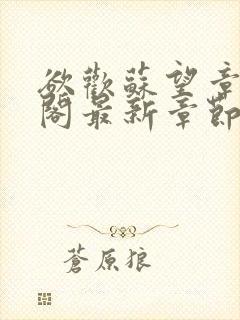 欲歡蘇望章
閣最新章節
蒼原狼